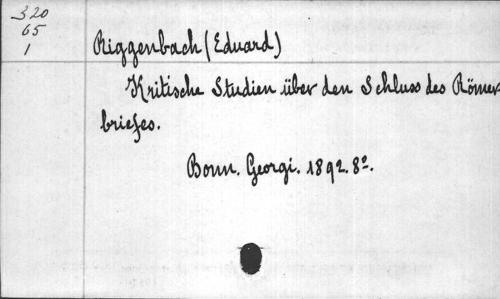 320
65
1
Riggenbach (Eduard)
Kritische Studien über den Schluss des Römer
briefes.
Bonn. Georgi. 1892. 8º.